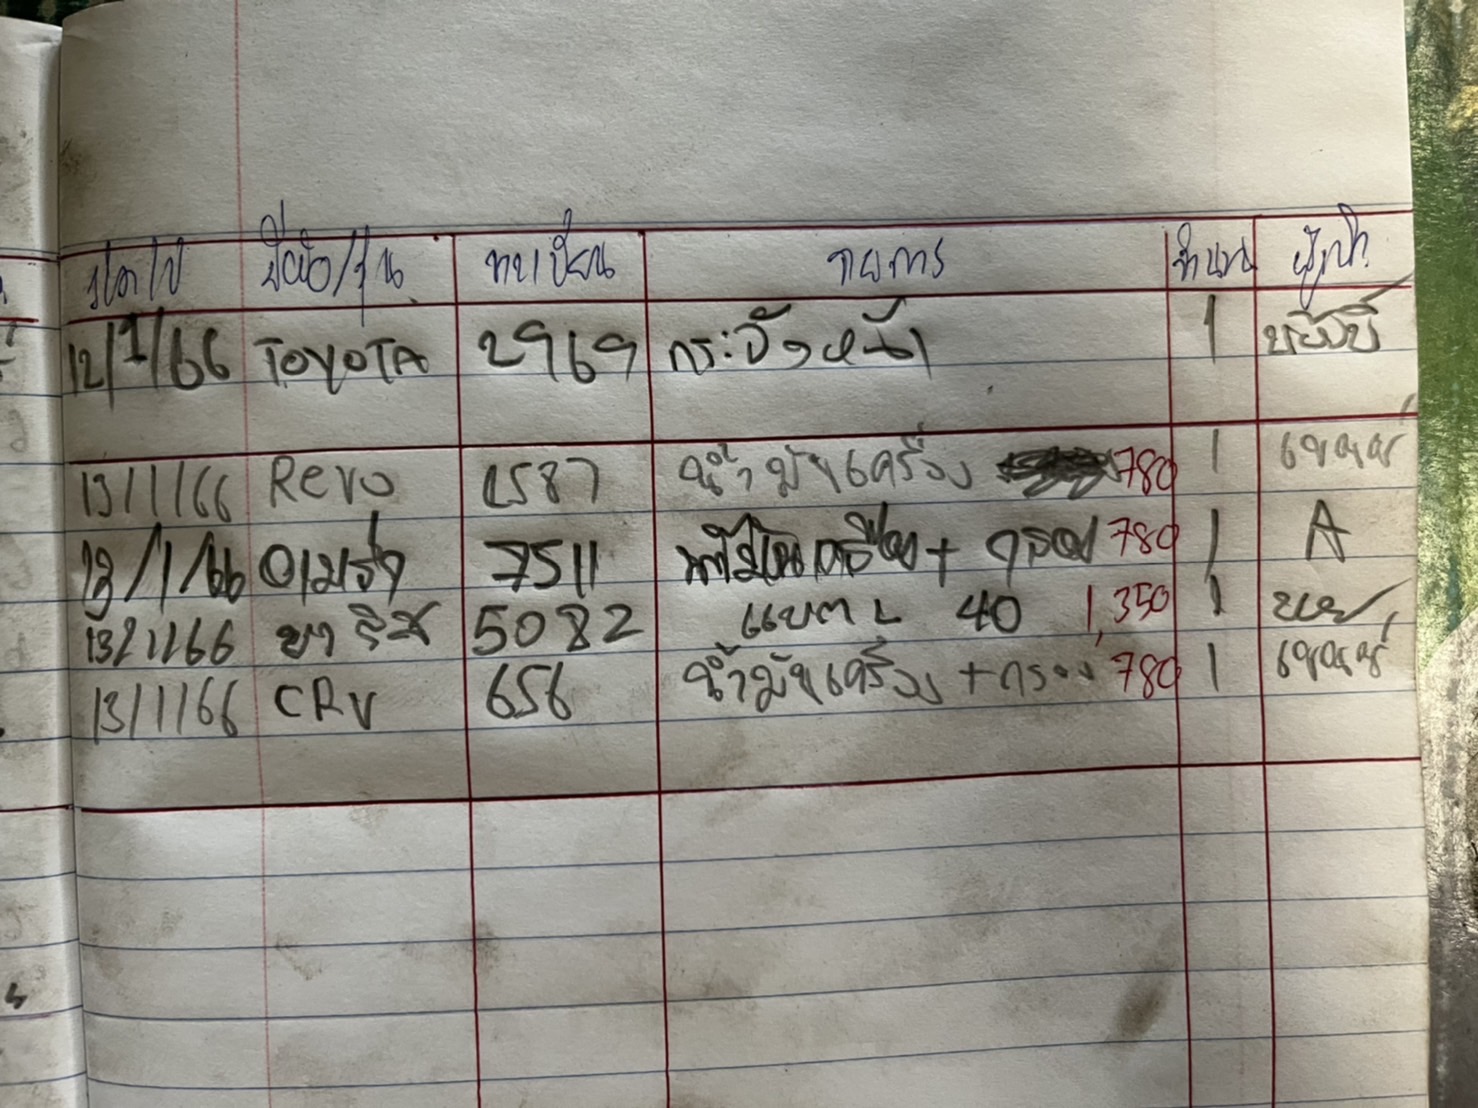 ว/ด/ป ยี่ห้อ/รุ่น ทะเบียน รายการ จำนวน ผู้ทำ
12/1/66 TOYOTA 2969 กระจังหน้า 1
13/1/66 Revo 1587 น้ำมันเครื่อง 780 1
13/1/66 อเมร่า 7511 + กรอง 780 1 A
13/1/66 ยาริส 5082 แบต L 40 1,350 1
13/1/66 CRV 656 น้ำมันเครื่อง + กรอง 780 1